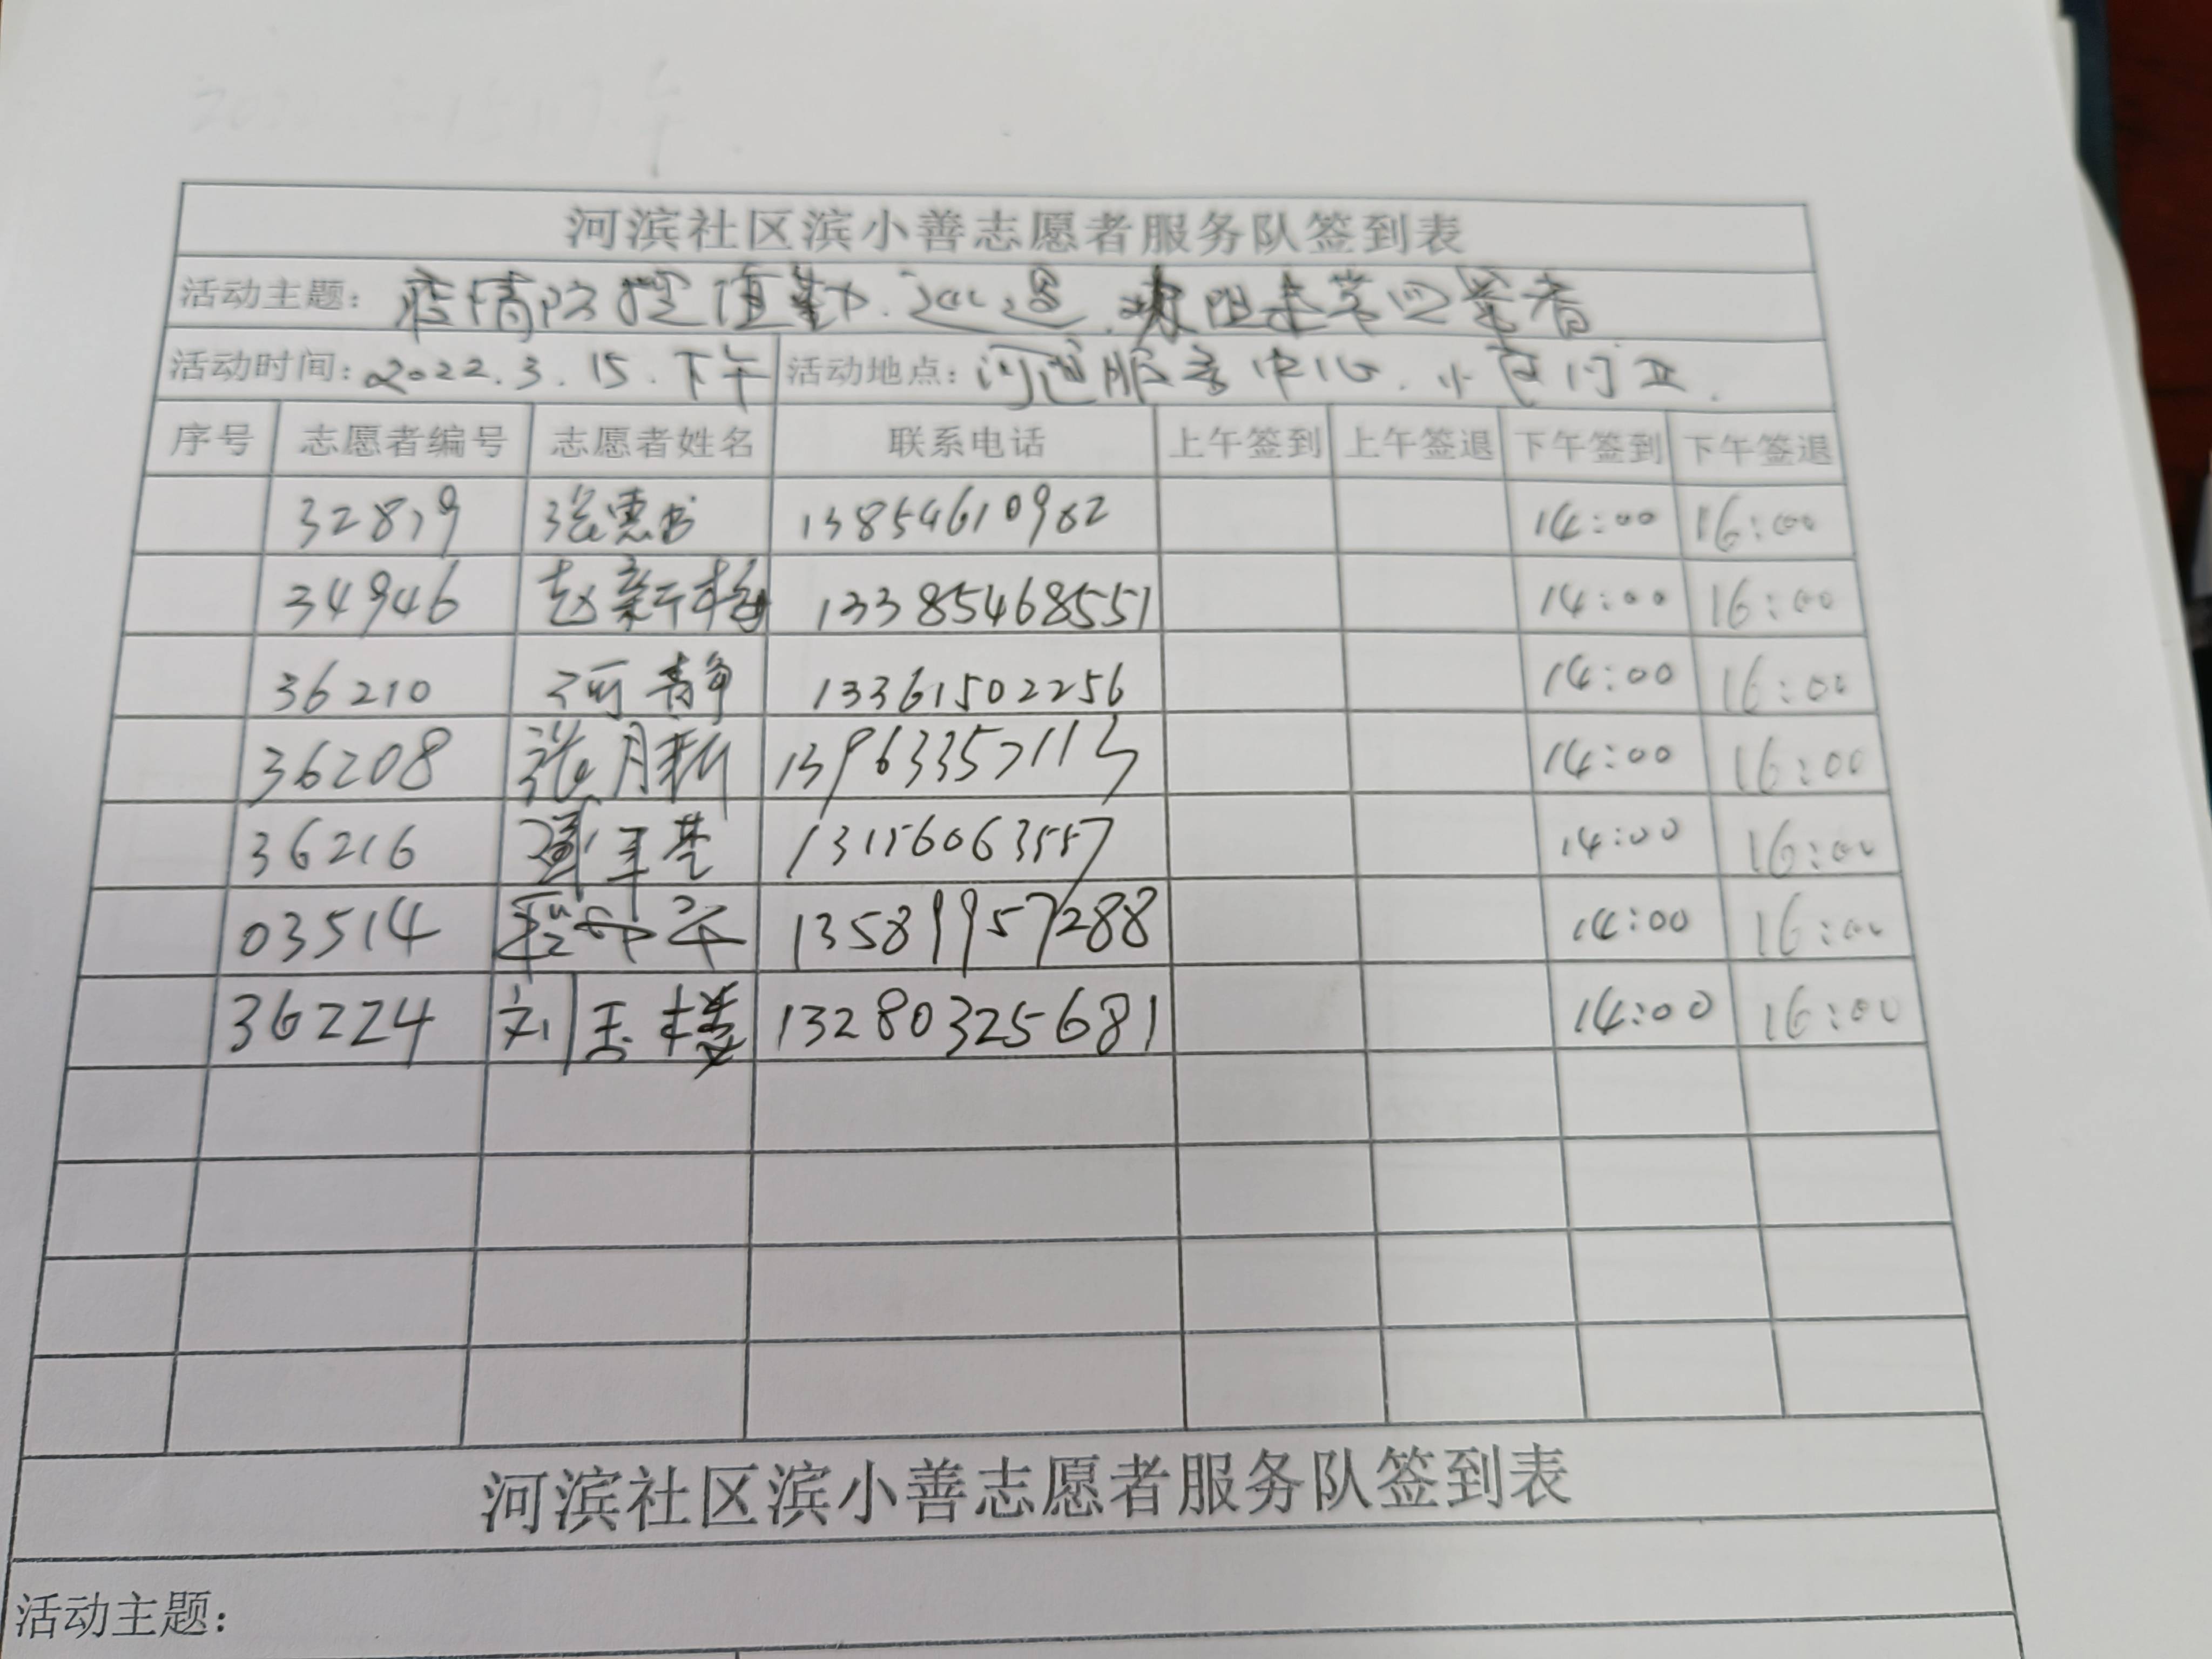 河滨社区滨小善志愿者服务队签到表
活动主题: 疫情防控值勤.巡逻.
活动时间: 2022.3.15.下午 活动地点: 服务中心.小区门口.
序号 志愿者编号 志愿者姓名 联系电话 上午签到 上午签退 下午签到 下午签退
32879 张惠 13854610982 14:00 16:00
34946 赵新梅 13385468551 14:00 16:00
36210 静 13361502256 14:00 16:00
36208 张月新 13963357113 14:00 16:00
36216 13156063557 14:00 16:00
03514 13589957288 14:00 16:00
36224 刘玉楼 13280325681 14:00 16:00
河滨社区滨小善志愿者服务队签到表
活动主题: